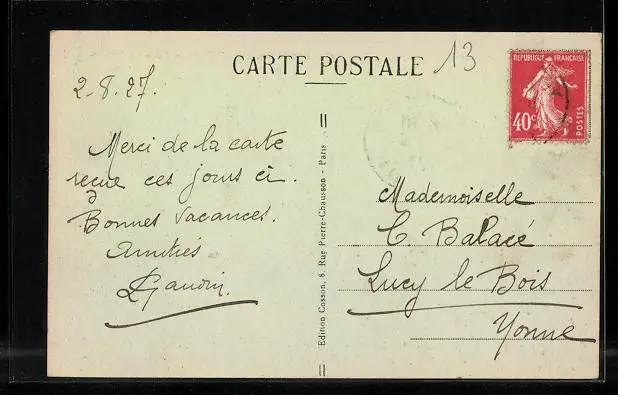 CARTE POSTALE
13
2-8.27.
Merci de la carte
reçue ces jours ci.
Bonnes vacances.
Amitiés
Gaudin.
Edition Cosson, 8, Rue Pierre-Chausson - Paris
REPUBLIQUE FRANÇAISE
40c
POSTES
Mademoiselle
C. Balacé
Lucy le Bois
Yonne